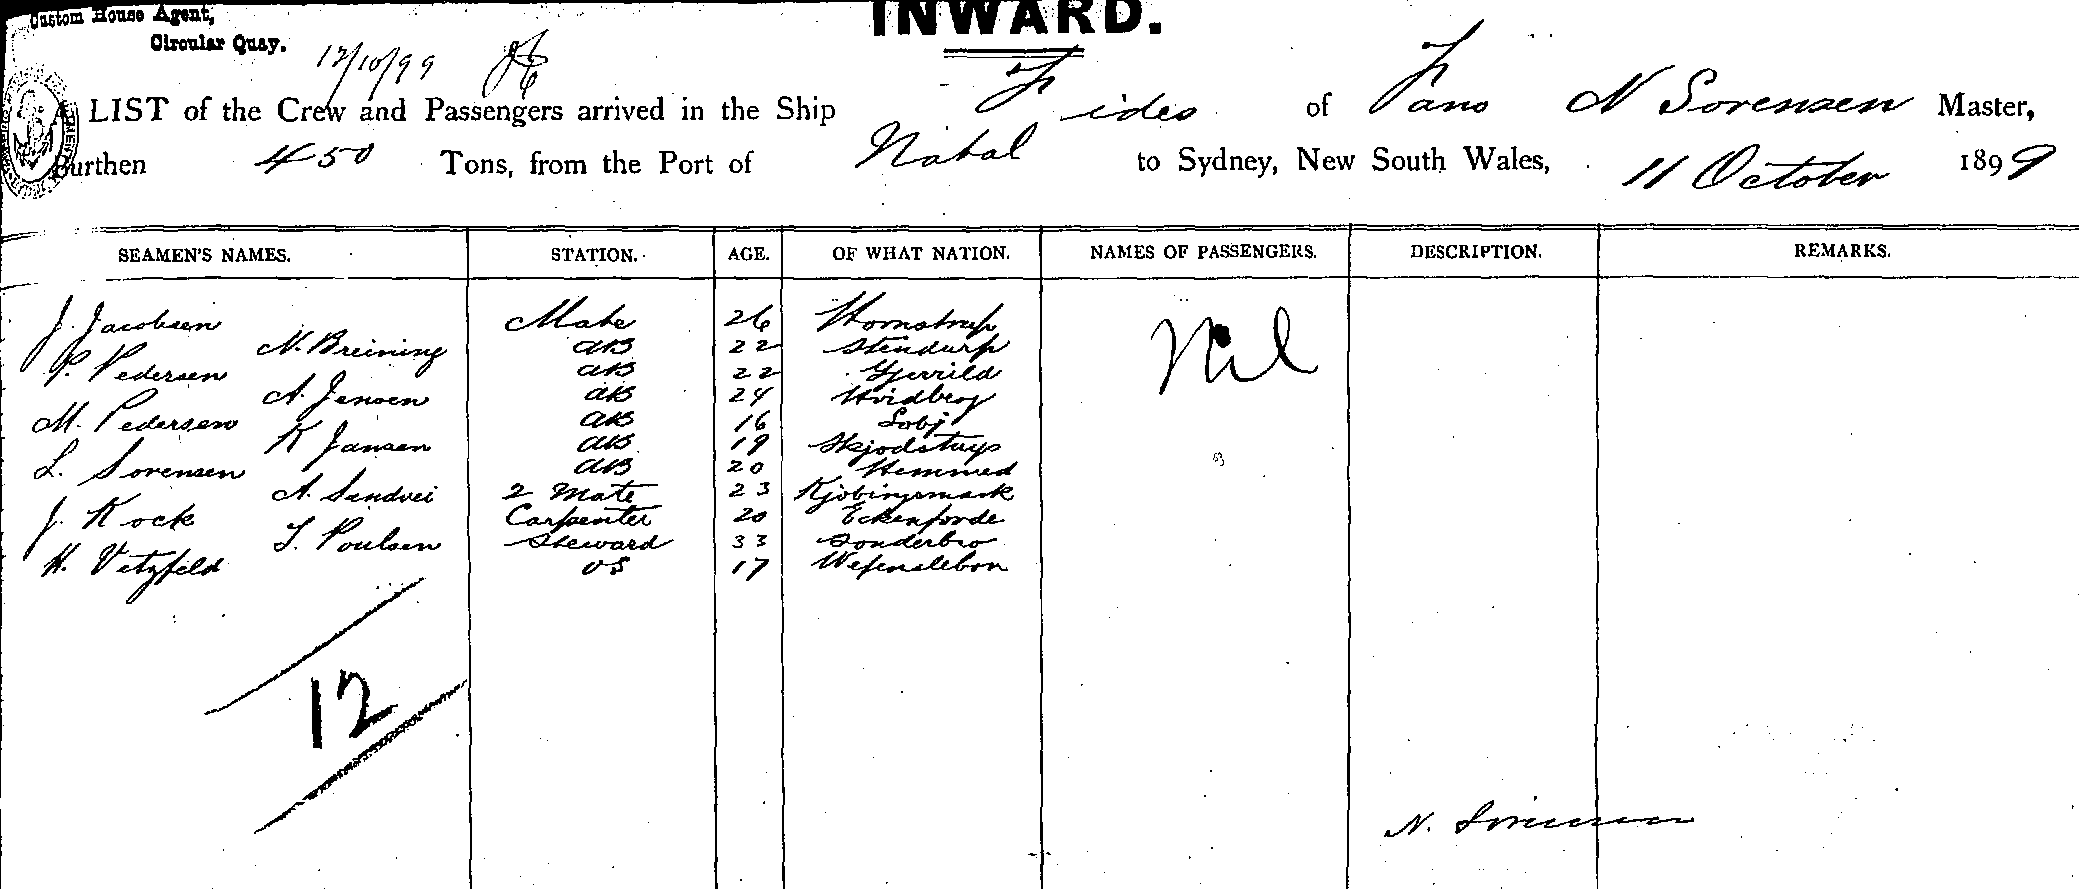 Custom House Agent,
INWARD.
Circular Quay.
12/10/99
A LIST of the Crew and Passengers arrived in the Ship Fides of Fano N Sorensen Master,
Burthen 450 Tons, from the Port of Natal to Sydney, New South Wales, 11 October 1899
SEAMEN'S NAMES. STATION. AGE. OF WHAT NATION. NAMES OF PASSENGERS. DESCRIPTION. REMARKS.
J. Jacobsen Mate 26 Hornstrup Nil
N. Breining AB 22 Stendurp
P. Pedersen AB 22 Gjerrild
A. Jensen AB 24 Hvidberg
M. Pedersen AB 16 Lobj
K Jansen AB 19 Skjodstrup
L. Sorensen AB 20 Hemmed
A. Sandvei 2 Mate 23 Kjobingsmark
J. Kock Carpenter 20 Eckenforde
T. Poulsen Steward 33 Sonderbro
H. Vetzfeld OS 17 Wefenslebon
12
N. Sorensen